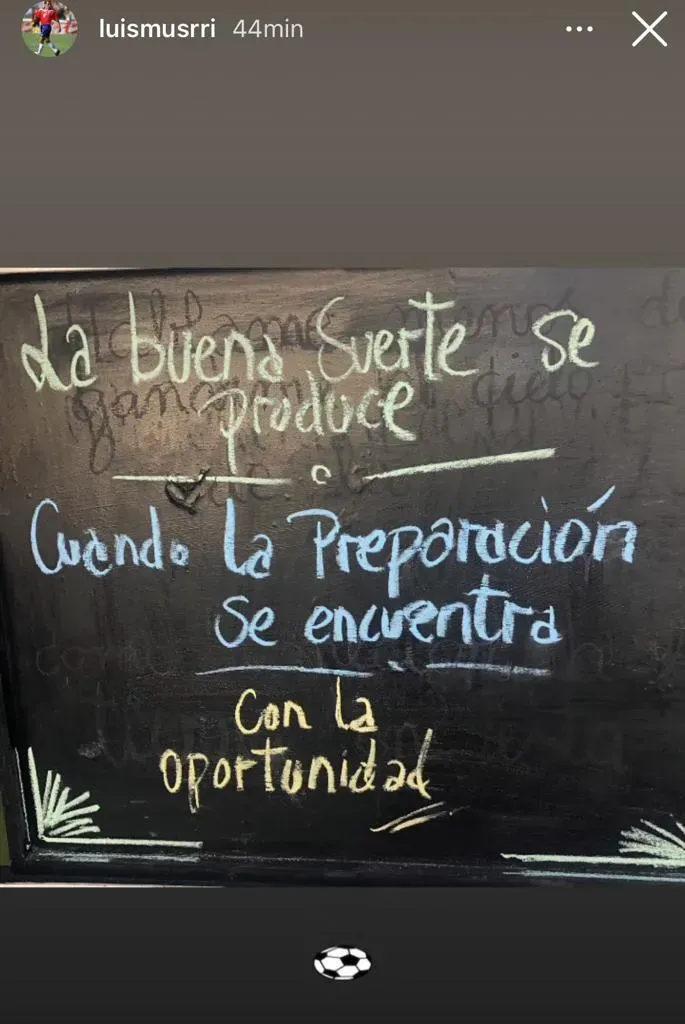 luismusrri 44min
La buena Suerte se
produce
Cuando la Preparación
se encuentra
con la
oportunidad